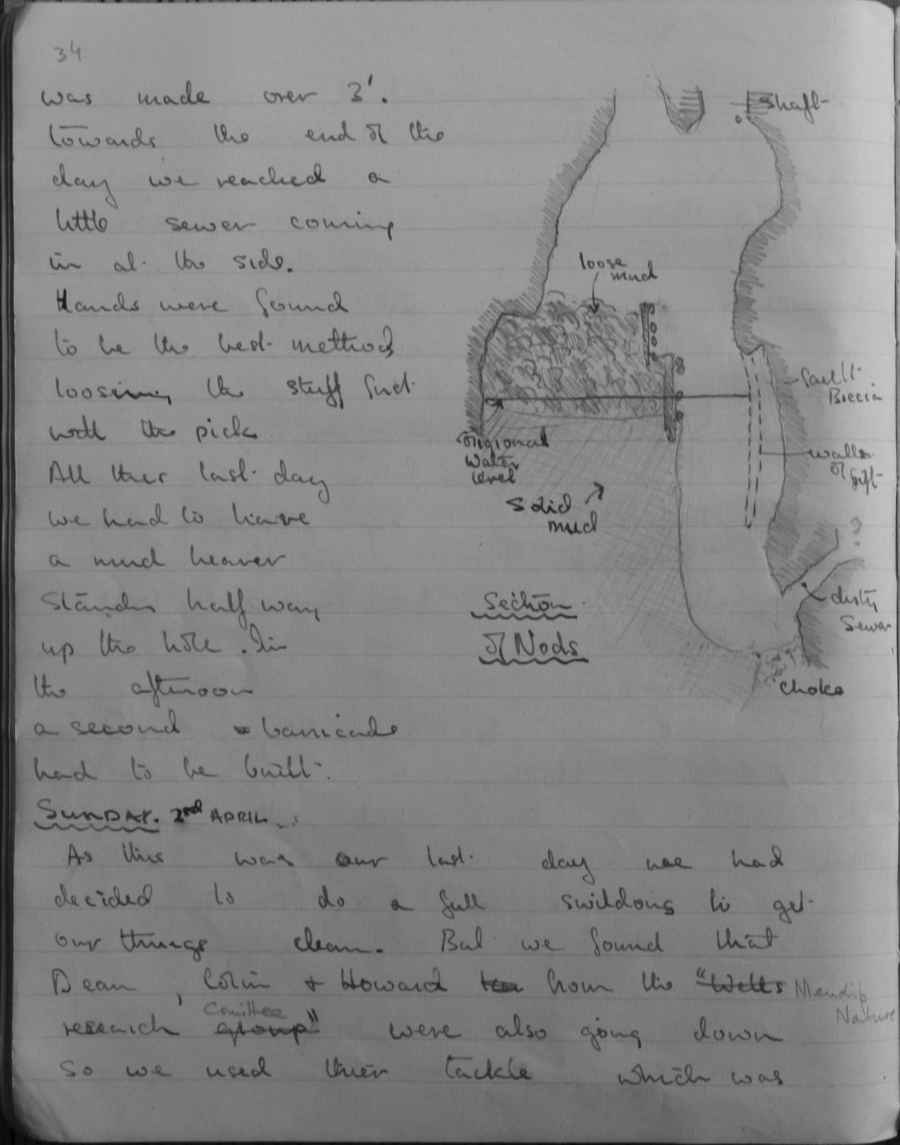 34
was made over 3'.
towards the end of the
day we reached a
little sewer coming
in at the side.
Hands were found
to be the best method
loosing the stuff first
with the pick
All ther last day
we had to have
a mud heaver
standing half way
up the hole. In
the afternoon
a second barricade
had to be built.
shaft
loose
mud
fault
Breccia
origional
water
level
walls
of rift
solid
mud
?
dirty
sewer
Section
of Nods
choke
SUNDAY. 2nd APRIL
As this was our last day we had
decided to do a full swildons to get
our things clean. But we found that
Dean, Colin + Howard from the "Wells Mendip
Nature
research group" Comittee were also going down
so we used their tackle which was